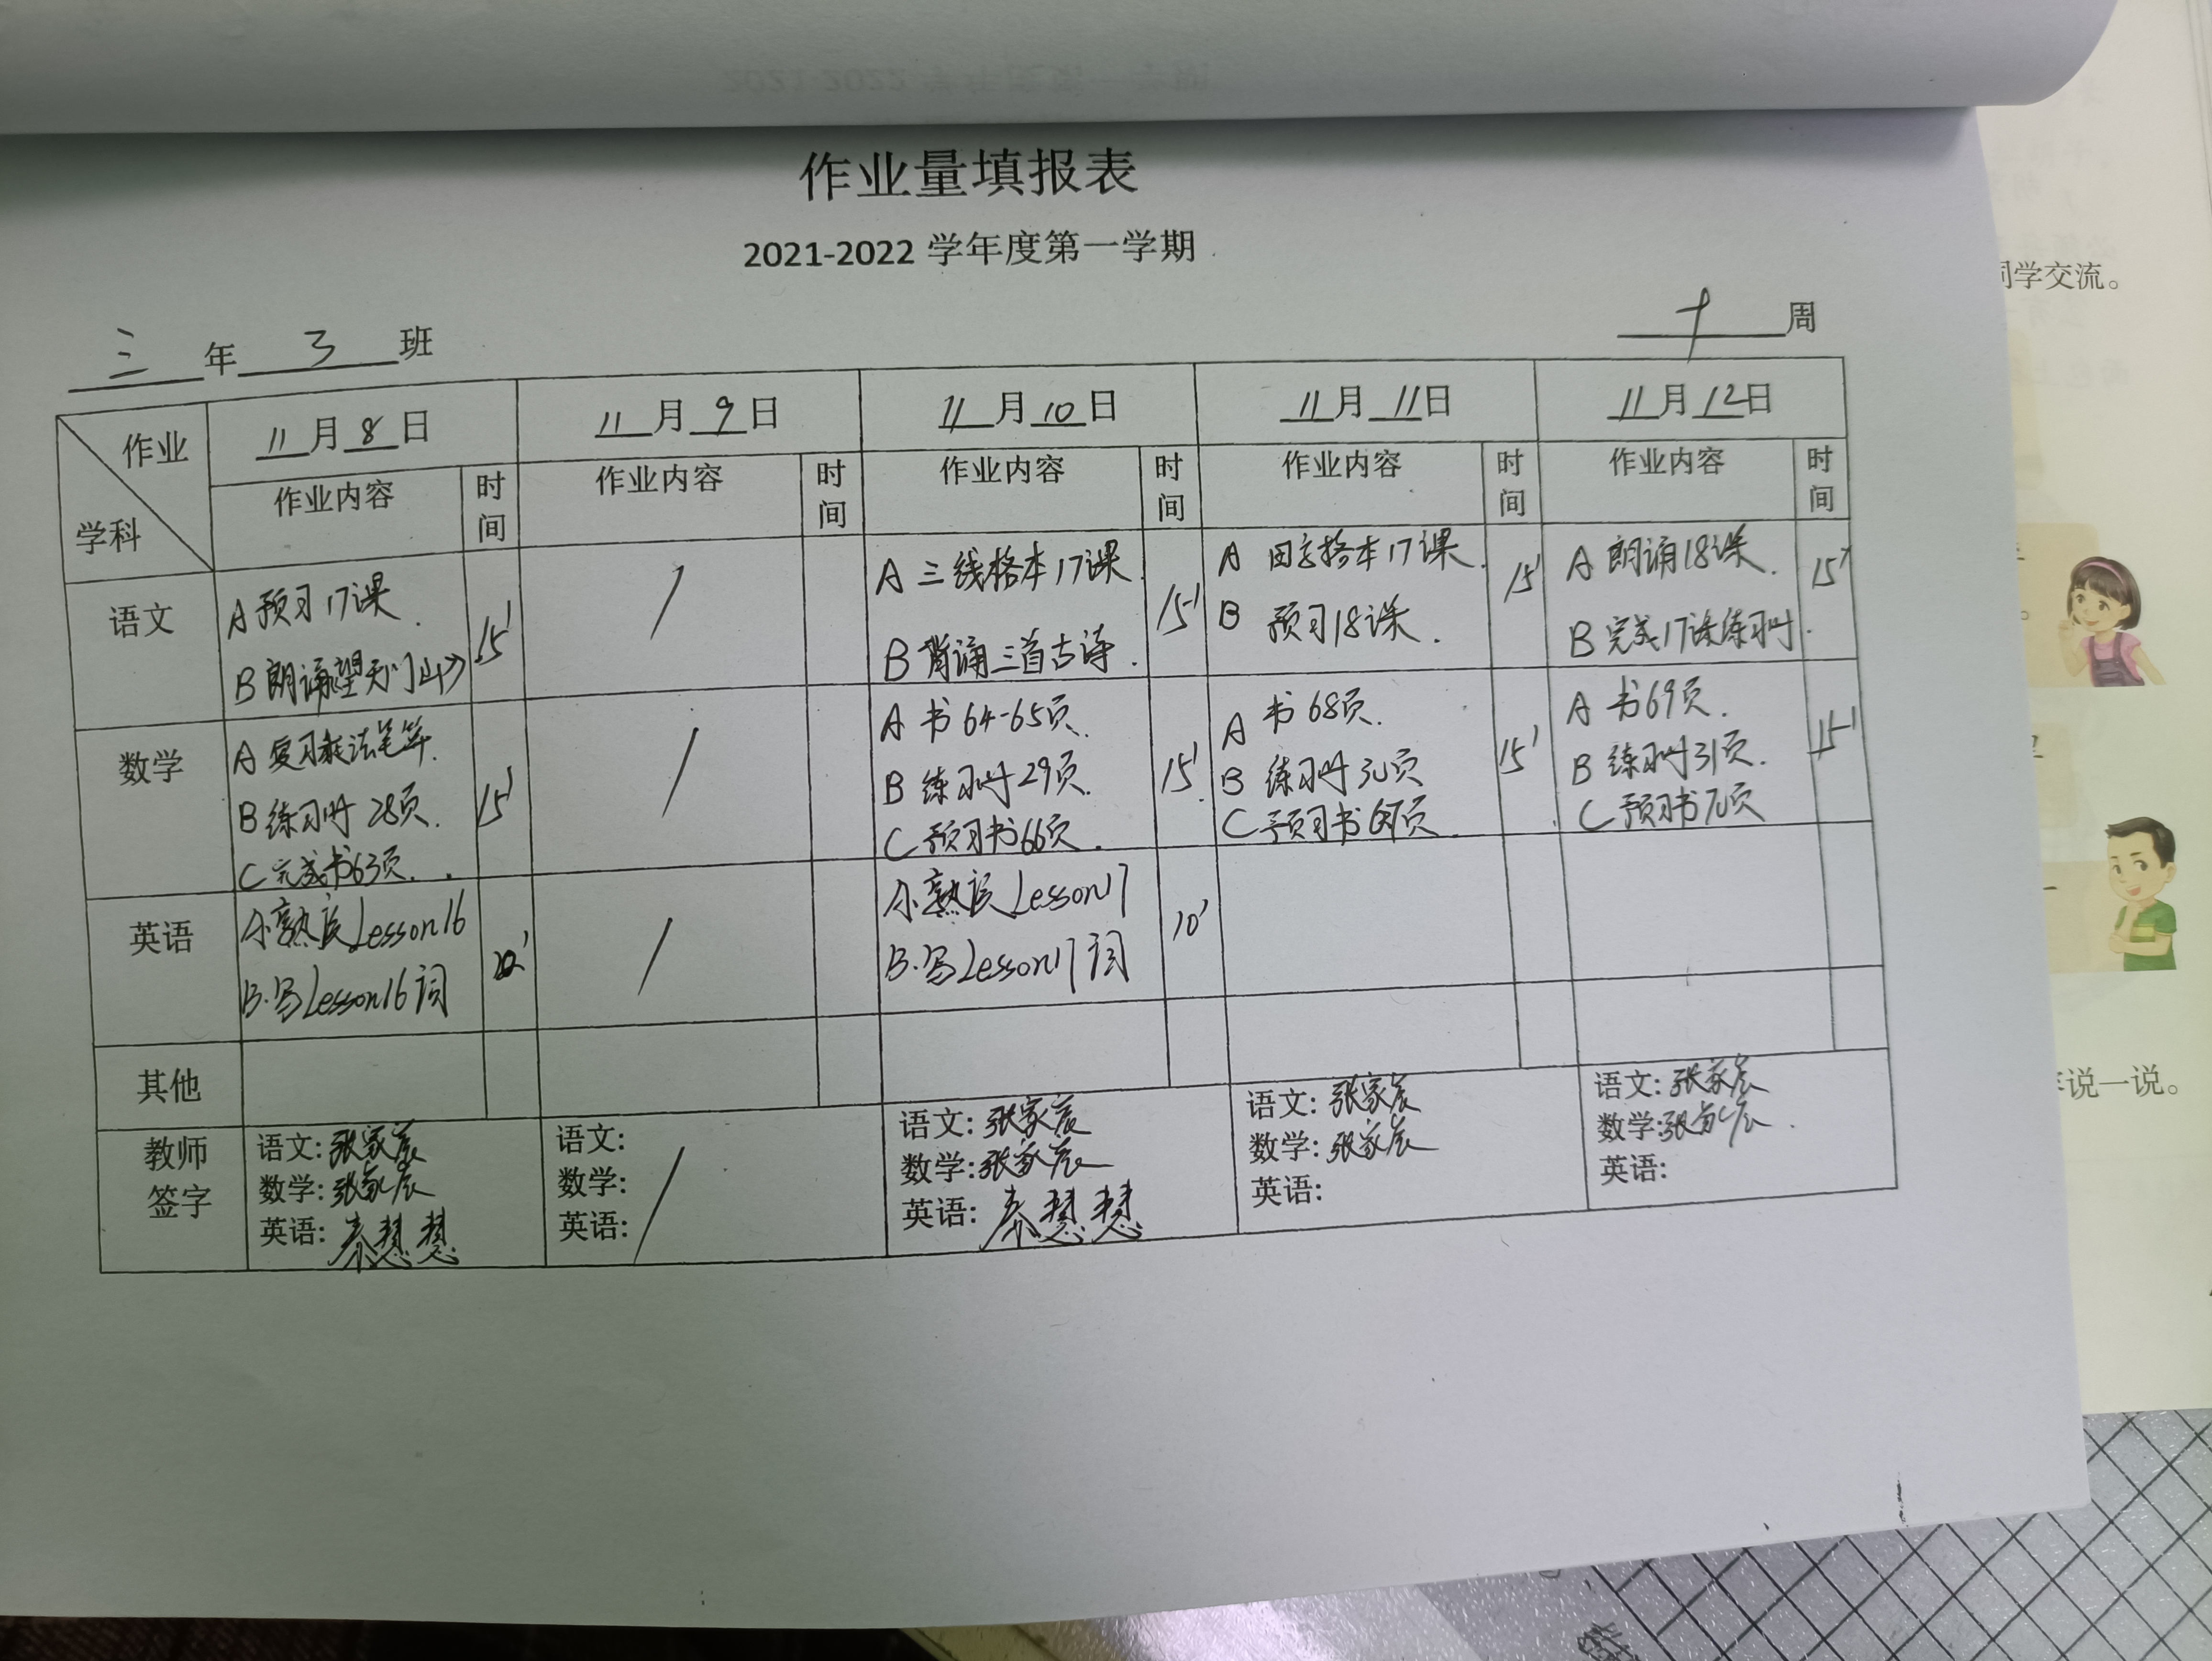 作业量填报表
2021-2022 学年度第一学期
三 年 3 班
十 周
作业
学科
11 月 8 日
11 月 9 日
11 月 10 日
11 月 11 日
11 月 12 日
作业内容 时间
作业内容 时间
作业内容 时间
作业内容 时间
作业内容 时间
语文
A 预习17课.
B 朗诵望天门山》
15'
/
A 三线格本17课
B 背诵三首古诗.
15'
A 田字格本17课.
B 预习18课.
15'
A 朗诵18课.
B 完成17课练习册.
15'
数学
A 复习乘法笔算.
B 练习册 28页.
C 完成书63页.
15'
/
A 书 64-65页.
B 练习册 29页.
C 预习书66页.
15'
A 书 68页.
B 练习册 30页
C 预习书67页.
15'
A 书69页.
B 练习册31页.
C 预习书70页
15'
英语
A.熟读Lesson16
B.写Lesson16词
/
A.熟读Lesson17
B.写Lesson17词
10'
其他
教师
签字
语文: 张家宸
数学: 张家宸
英语: 秦慧慧
语文:
数学:
英语:
/
语文: 张家宸
数学: 张家宸
英语: 秦慧慧
语文: 张家宸
数学: 张家宸
英语:
语文: 张家宸
数学: 张家宸.
英语:
同学交流。
说一说。